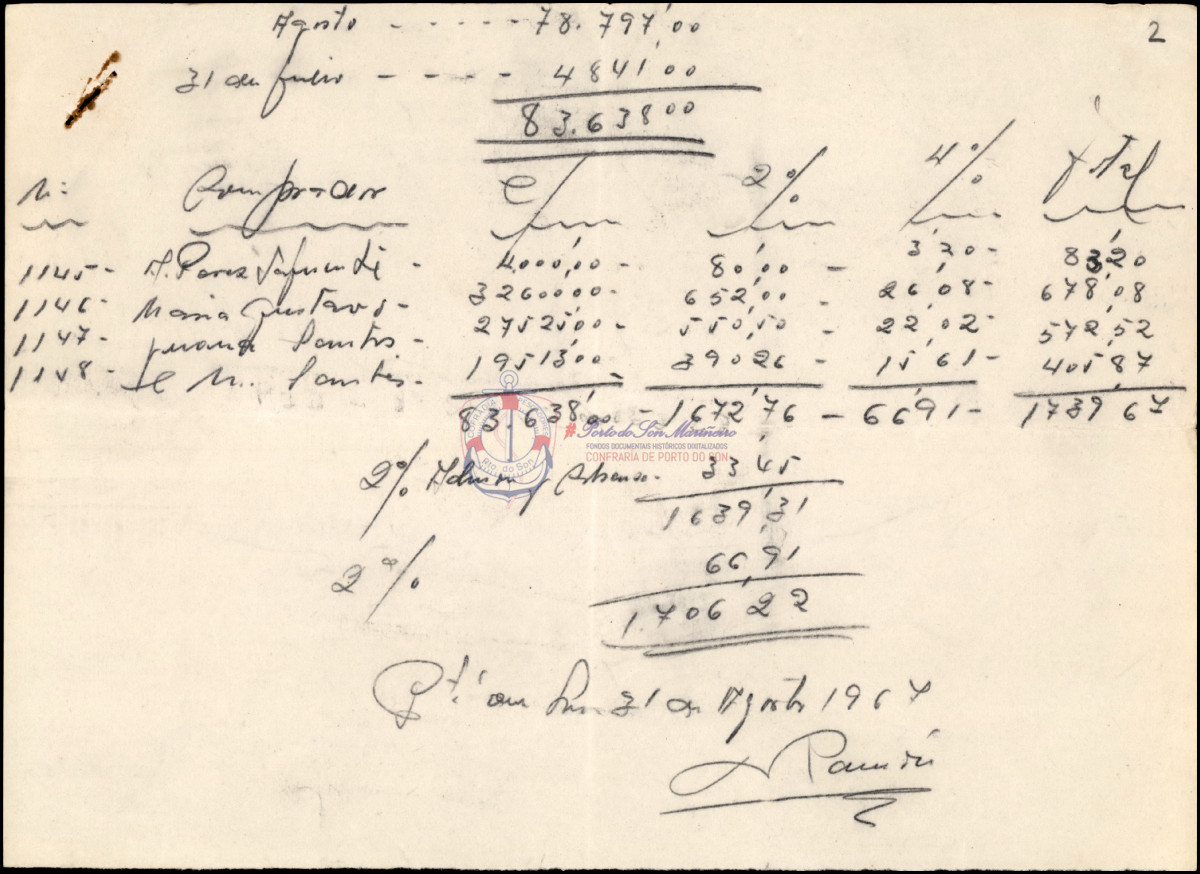 2
Agosto - - - - - 78.797,00
31 de Julio - - - - 4841,00
83.638,00
Nº Comprador 2% 4% Total
1145- A. Perez Lafuente - 4.000,00 - 80,00 - 3,20 - 83,20
1146- Maria Gustavo - 32600,00 - 652,00 - 26,08 - 678,08
1147- Juana Santos - 27525,00 - 550,50 - 22,02 - 572,52
1148- Santos - 19513,00 - 390,26 - 15,61 - 405,87
83.638,00 - 1672,76 - 66,91 - 1739,67
2% Admon y 33,45
1639,31
2% 66,91
1.706,22
Ptº del Son 31 de Agosto 1967
Ramón
COFRADIA
Pto. do Son
#Porto do Son Mariñeiro
FONDOS DOCUMENTAIS HISTÓRICOS DIXITALIZADOS
CONFRARÍA DE PORTO DO SON